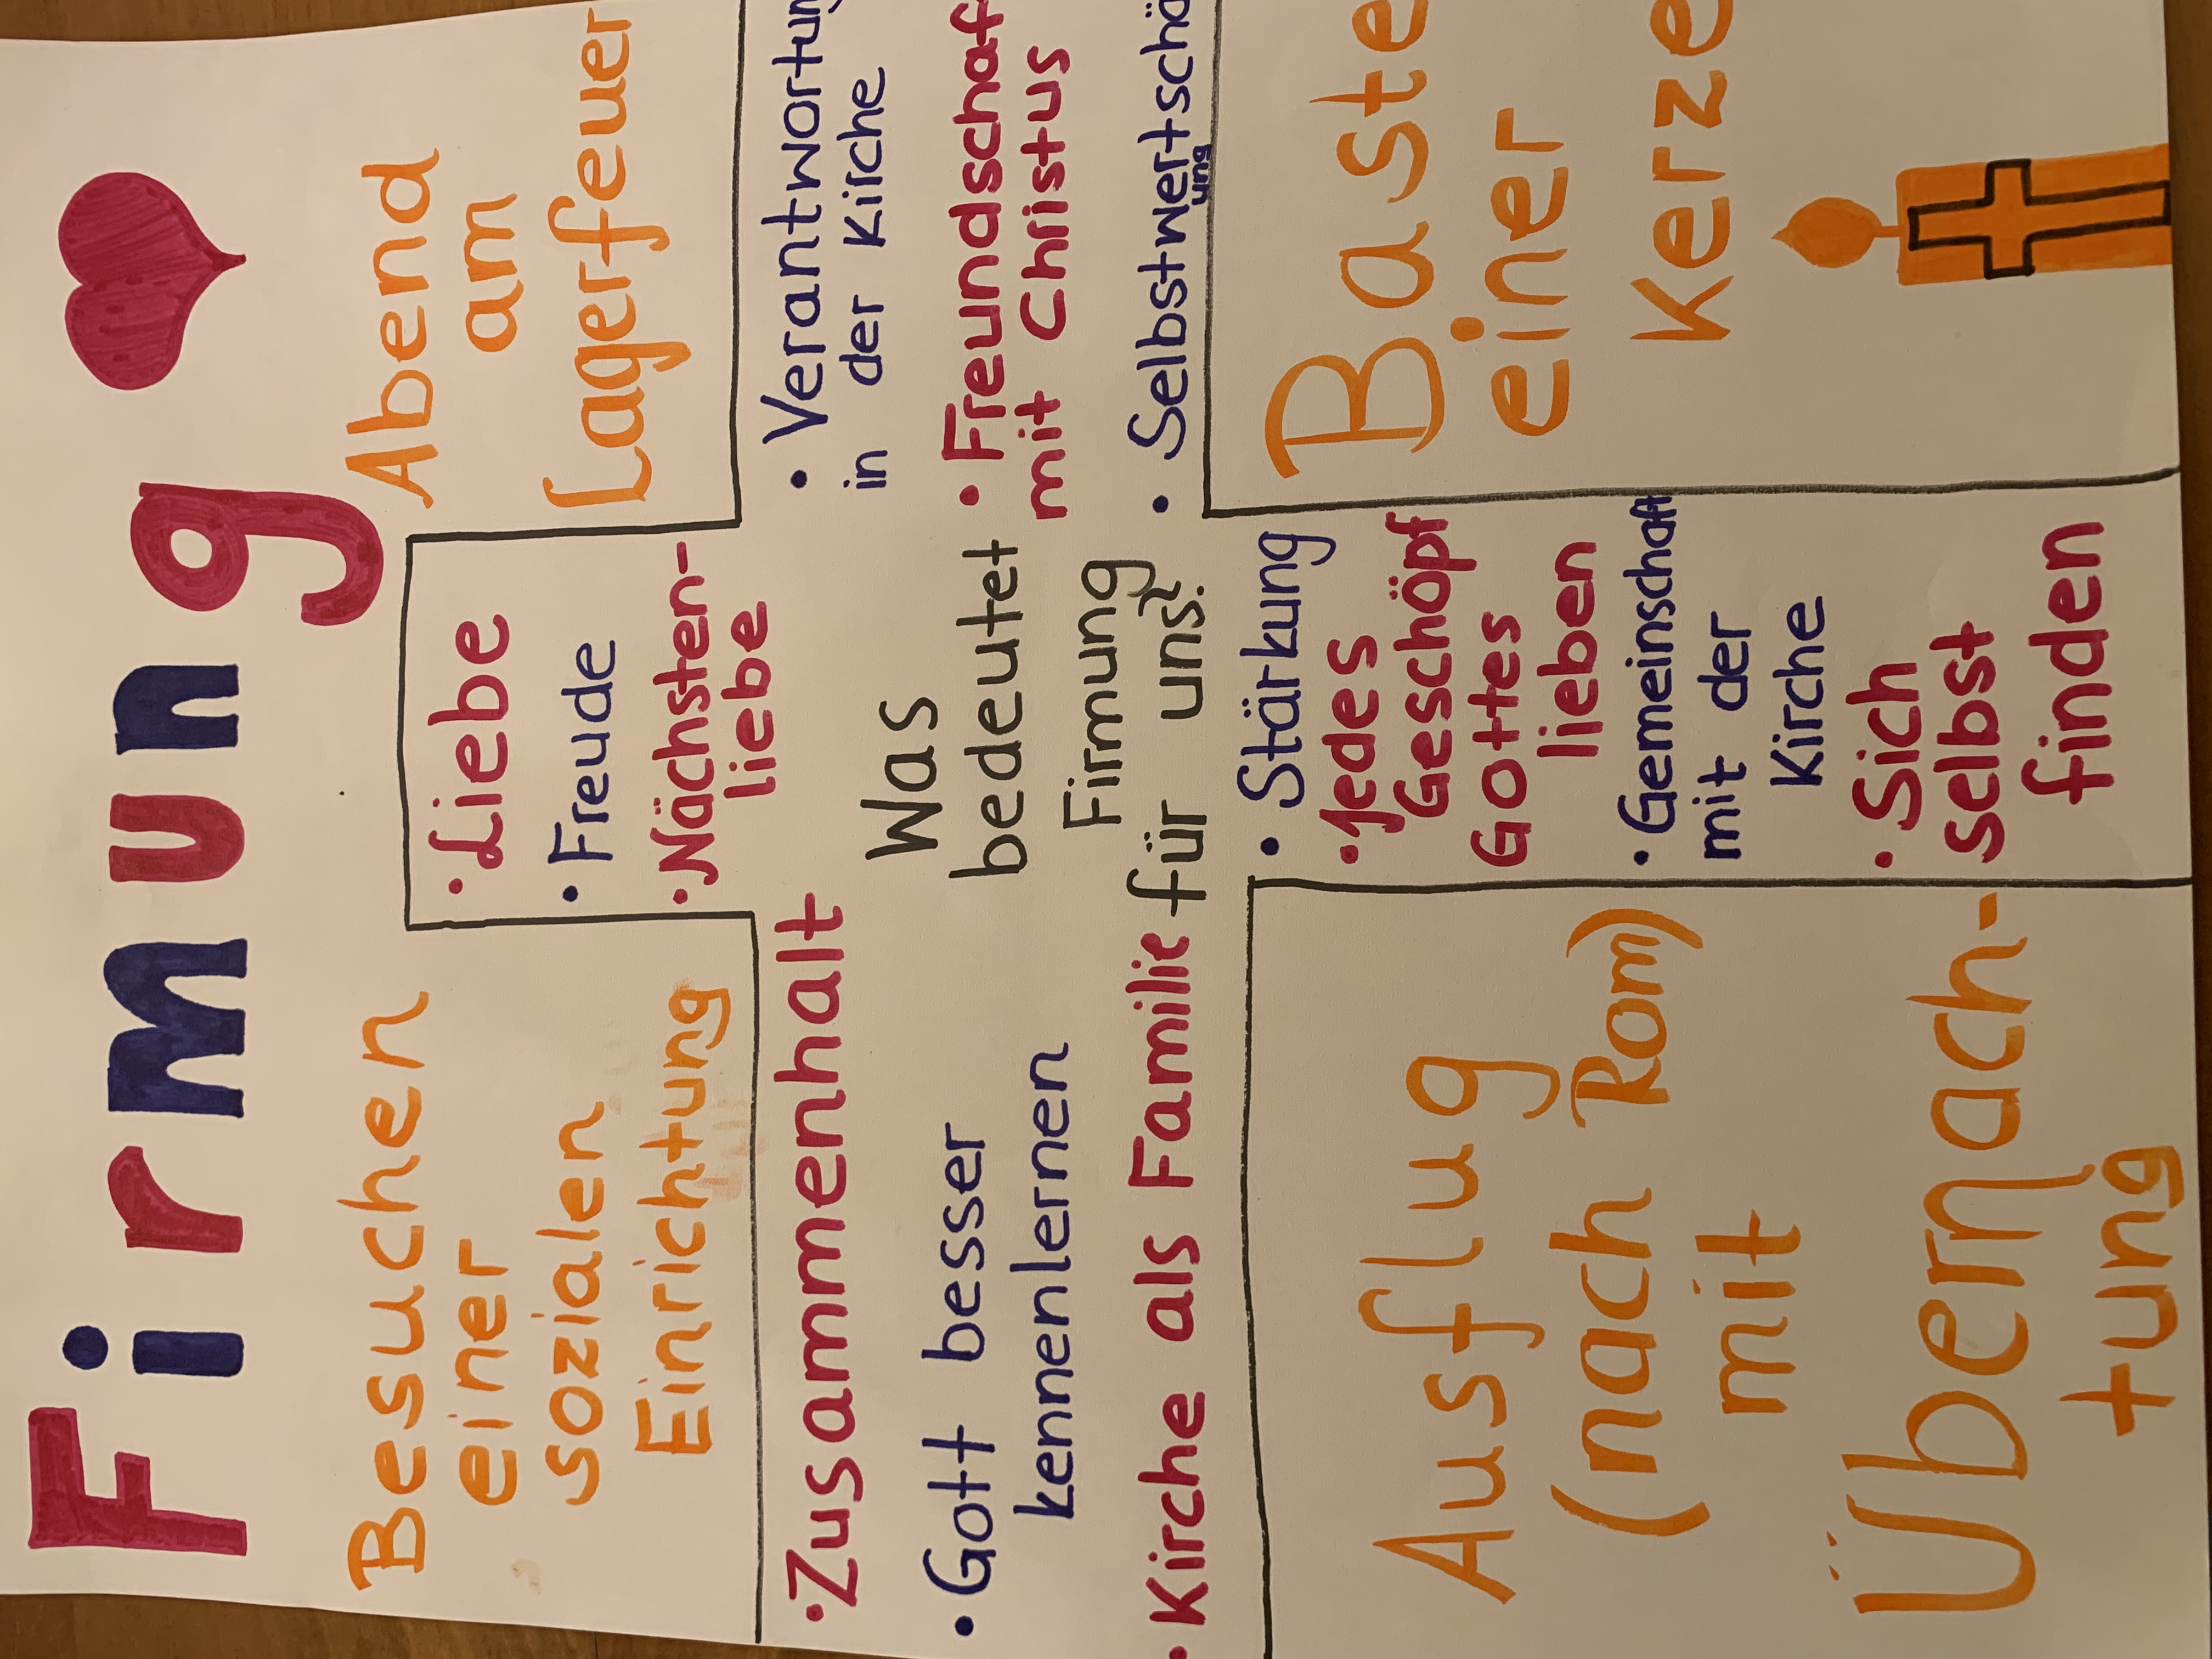 Firmung
Besuchen
einer
sozialen
Einrichtung
• Liebe
• Freude
• Nächsten-
liebe
Abend
am
Lagerfeuer
• Zusammenhalt
• Gott besser
kennenlernen
• Kirche als Familie
Was
bedeutet
Firmung
für uns?
• Verantwortun
in der Kirche
• Freundschaf
mit Christus
• Selbstwertschä
ung
• Stärkung
• Jedes
Geschöpf
Gottes
lieben
• Gemeinschaft
mit der
Kirche
• Sich
selbst
finden
Ausflug
(nach Rom)
mit
Übernach-
tung
Baste
einer
Kerze